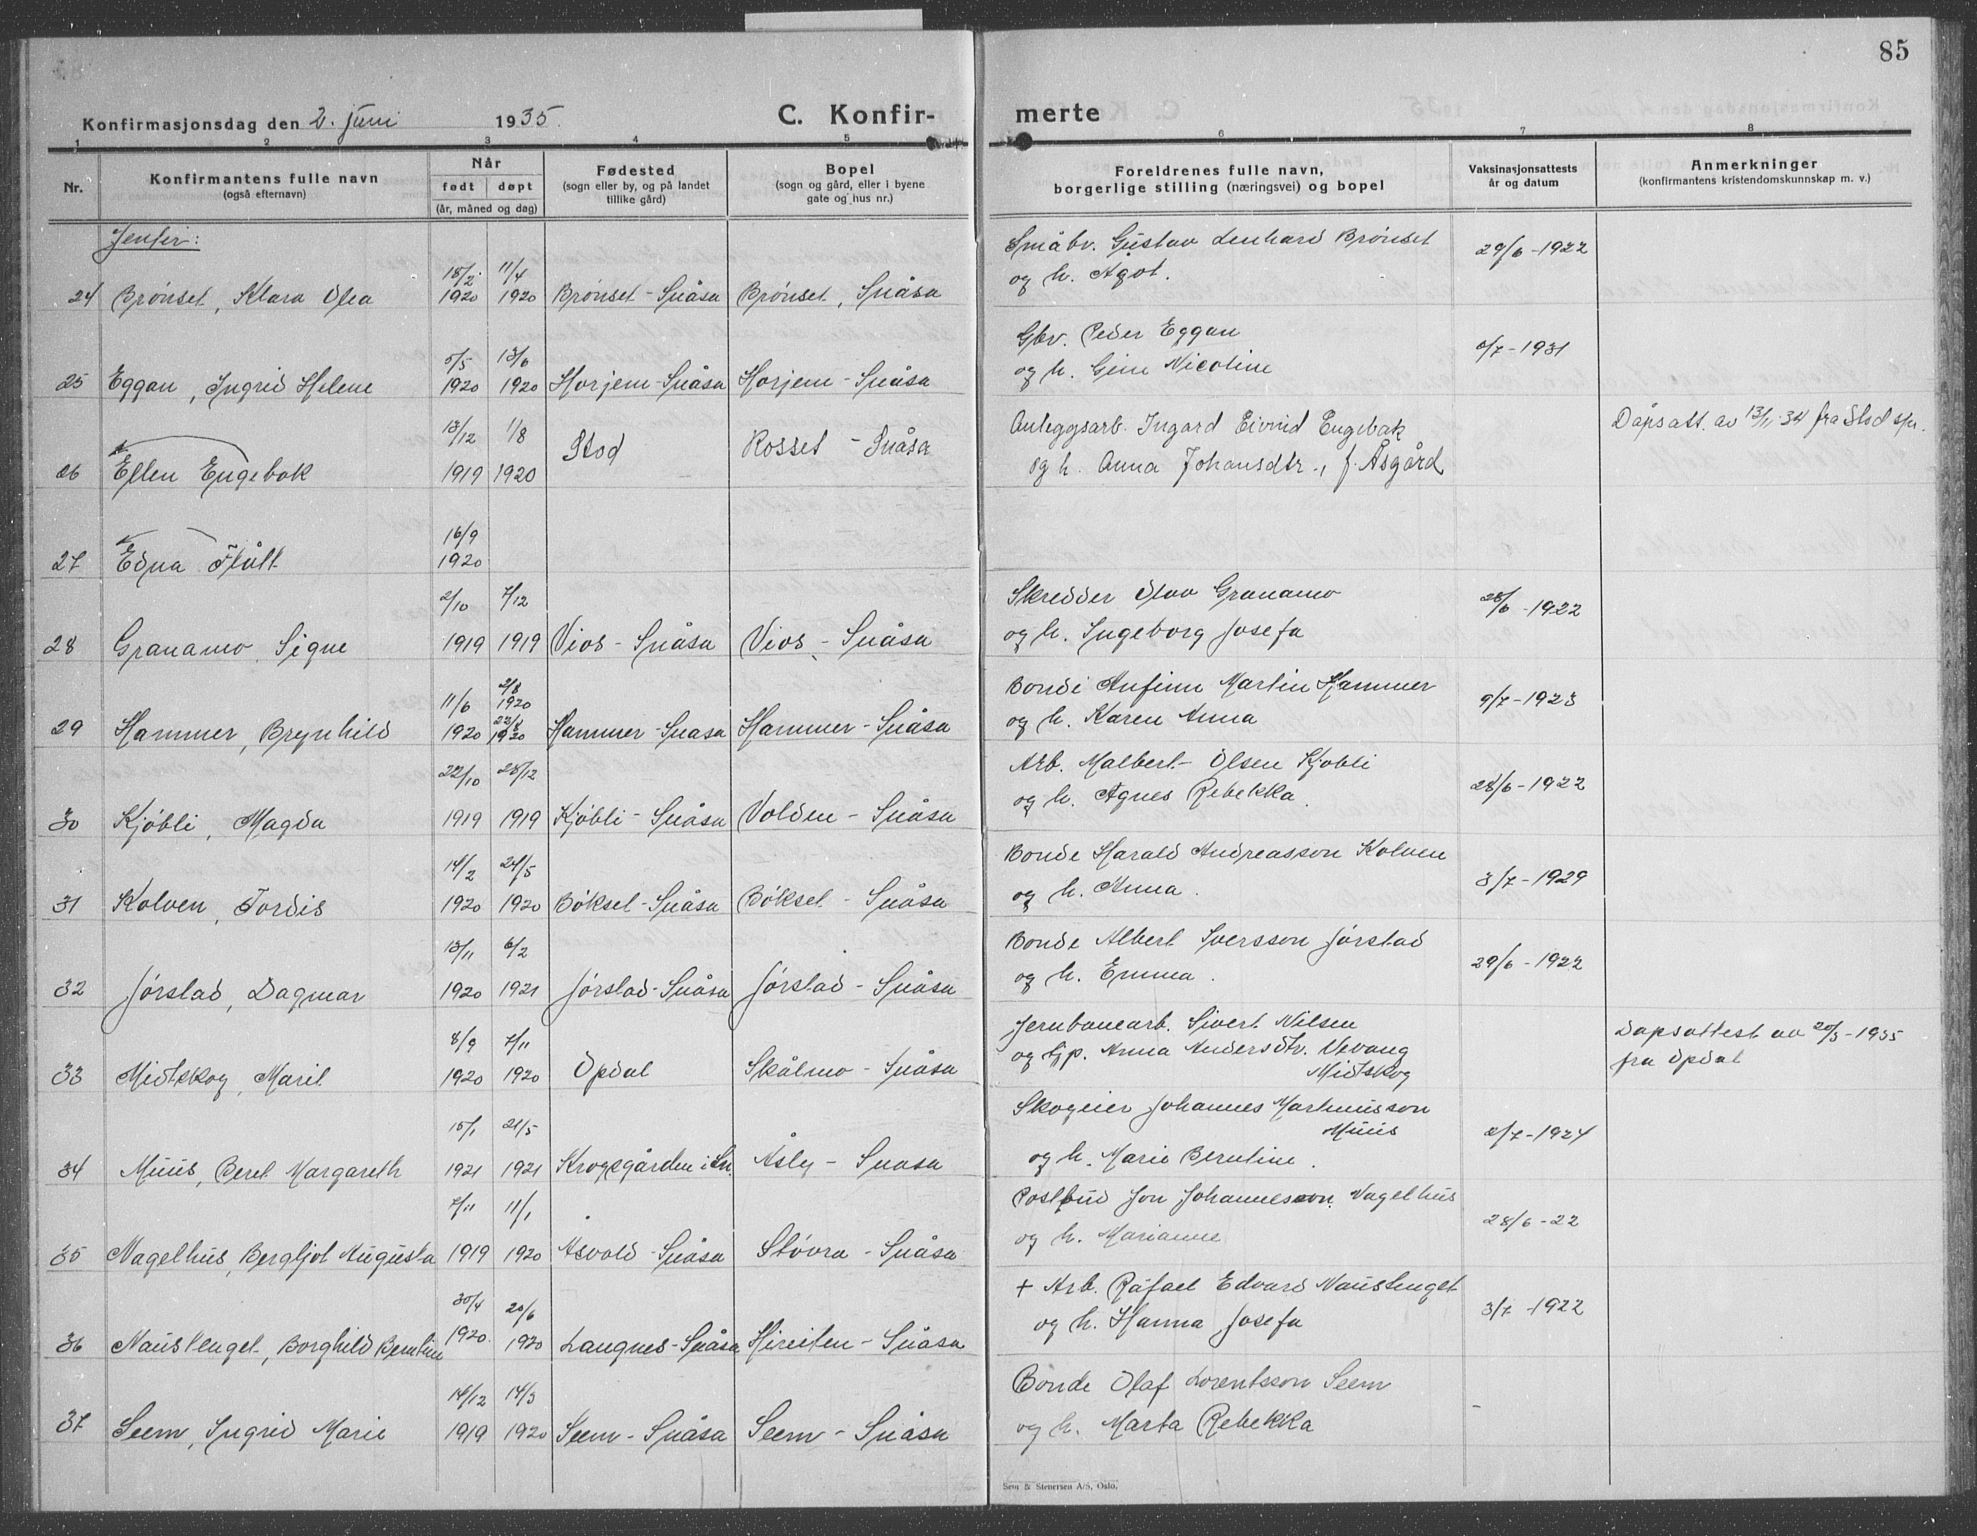 85
Konfirmasjonsdag den 2. juni 1935. C. Konfir- merte
1 2 3 4 5 6 7 8
Nr. Konfirmantens fulle navn (også efternavn) Når født døpt (år, måned og dag) Fødested (sogn eller by, og på landet tillike gård) Bopel (sogn og gård, eller i byene gate og hus nr.) Foreldrenes fulle navn, borgerlige stilling (næringsvei) og bopel Vaksinasjonsattests år og datum Anmerkninger (konfirmantens kristendomskunnskap m. v.)
Jenter:
24 Brönset, Klara Olea 18/2 1920 11/4 1920 Brönset - Snåsa Brönset, Snåsa Småbr. Gustav Lenhard Brönset og h. Agot. 29/6 - 1922
25 Eggan, Ingrid Helene 5/5 1920 13/6 1920 Horjem - Snåsa Horjem - Snåsa Gbr. Peder Eggan og h. Gine Nicoline /7 - 1931
26 Ellen Engebak 13/12 1919 1/8 1920 Stod Rosset - Snåsa Anleggsarb. Ingard Eivind Engebak og h. Anna Johansdtr., f. Åsgård Dåpsatt. av 13/11 34 fra Stod spr.
27 Edna Flått 16/9 1920
28 Granamo, Signe 2/10 1919 7/12 1919 Vios - Snåsa Vios - Snåsa Skredder Olav Granamo og h. Ingeborg Josefa 28/6 - 1922
29 Hammer, Brynhild 11/6 1920 2/8 1920 1920 Hammer - Snåsa Hammer - Snåsa Bonde Anfinn Martin Hammer og h. Karen Anna 9/7 - 1923
30 Kjöbli, Magda 22/10 1919 28/12 1919 Kjöbli - Snåsa Volden - Snåsa Arb. Malbert Olsen Kjøbli og h. Agnes Rebekka. 28/6 - 1922
31 Kolven, Tordis 14/2 1920 24/5 1920 Böksel - Snåsa Böksel - Snåsa Bonde Harald Andreasson Kolven og h. Anna. 3/7 - 1929
32 Jørstad, Dagmar 13/11 1920 6/2 1921 Jørstad - Snåsa Jørstad - Snåsa Bonde Albert Iversson Jørstad og h. Emma. 29/6 - 1922
33 Midtskog, Marit 8/9 1920 7/11 1920 Opdal Skålmo - Snåsa Jernbanearb. Sivert Nilsen og hp. Anna Andersdtr. Vevang Midtskog Dåpsattest av 20/3 - 1935 fra Opdal
34 Muus, Beret Margareth 15/1 1921 21/5 1921 Krogsgården i Sn. Åsly - Snåsa Skogeier Johannes Martinusson Muus og h. Marie Berntine. 2/7 - 1924
35 Nagelhus, Bergljot Augusta 7/11 1919 11/1 1920 Åsvold - Snåsa Stövra - Snåsa Postbud Jon Johannesson Nagelhus og h. Marianne 28/6 - 22
36 Naustenget, Borghild Berntine 30/4 1920. 20/6 1920 Langnes - Snåsa Hireiten - Snåsa + Arb. Rafael Edvard Naustenget og h. Hanna Josefa 3/7 - 1922
37 Seem, Ingrid Marie 14/12 1919 14/3 1920 Seem - Snåsa Seem - Snåsa Bonde Olaf Lorentsson Seem og h. Marta Rebekka -
Sem & Stenersen A/S, Oslo.